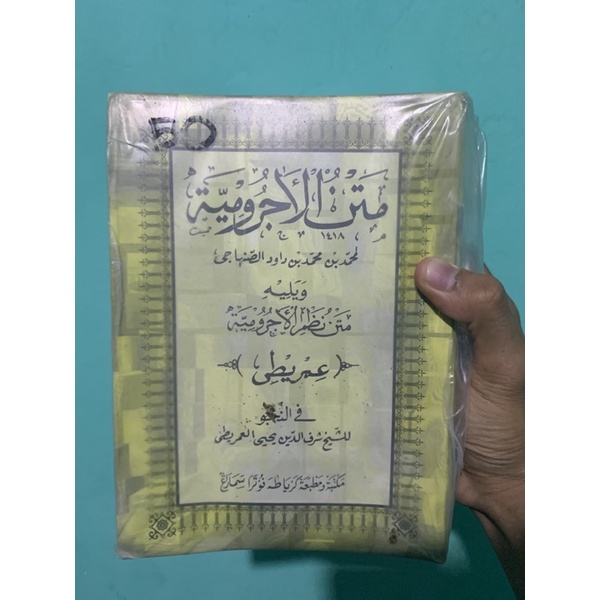 50
متن الأجرومية
١٤١٨
لمحمد بن محمد بن داود الصنهاجى
ويليه
متن نظم الأجرومية
(عمريطى)
فى النحو
للشيخ شرف الدين يحيى العمريطى
مكتبة ومطبعة كرياطه فوترا سمارغ